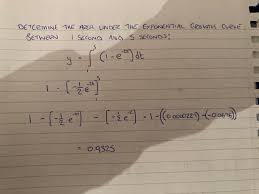 DETERMINE THE AREA UNDER THE EXPONENTIAL GROWTH CURVE
BETWEEN 1 SECOND AND 5 SECONDS:
y = ∫ (1 - e ) dt
1 - [ -1/2 e ]
1 - [ -1/2 e ] - [ -1/2 e ] = 1 - ( ) - (-0.0676)
= 0.9325